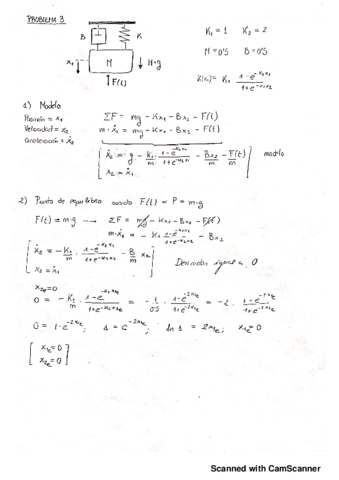 PROBLEM 3
B K
x₁ M M·g
F(t)
K₁ = 1 K₂ = 2
M = 0'5 B = 0'5
K(x₁) = K₁ · (1-e^(-K₂x₁))/(1+e^(-K₂x₁))
1) Modelo
Posición = x₁
Velocidad = x₂
aceleración = ẋ₂
ΣF = mg - Kx₁ - Bx₂ - F(t)
m·ẋ₂ = mg - Kx₁ - Bx₂ - F(t)
ẋ₂ = g - K₁/m · (1-e^(-K₂x₁))/(1+e^(-K₂x₁)) - Bx₂/m - F(t)/m
x₂ = ẋ₁
modelo
2) Punto de equilibrio cuando F(t) = P = m·g
F(t) = m·g → ΣF = mg - Kx₁ - Bx₂ - F(t)
m·ẋ₂ = - K₁ · (1-e^(-K₂x₁))/(1+e^(-K₂x₁)) - Bx₂
ẋ₂ = - K₁/m · (1-e^(-K₂x₁))/(1+e^(-K₂x₁)) - B/m x₂
x₂ = ẋ₁
Derivadas igual a 0
x₂e = 0
0 = - K₁/m · (1-e^(-K₂x₁e))/(1+e^(-K₂x₁e)) = - 1/0'5 · (1-e^(-2x₁e))/(1+e^(-2x₁e)) = -2 · (1-e^(-2x₁e))/(1+e^(-2x₁e))
0 = 1-e^(-2x₁e); 1 = e^(-2x₁e); ln 1 = 2x₁e; x₁e = 0
x₁e = 0
x₂e = 0
Scanned with CamScanner